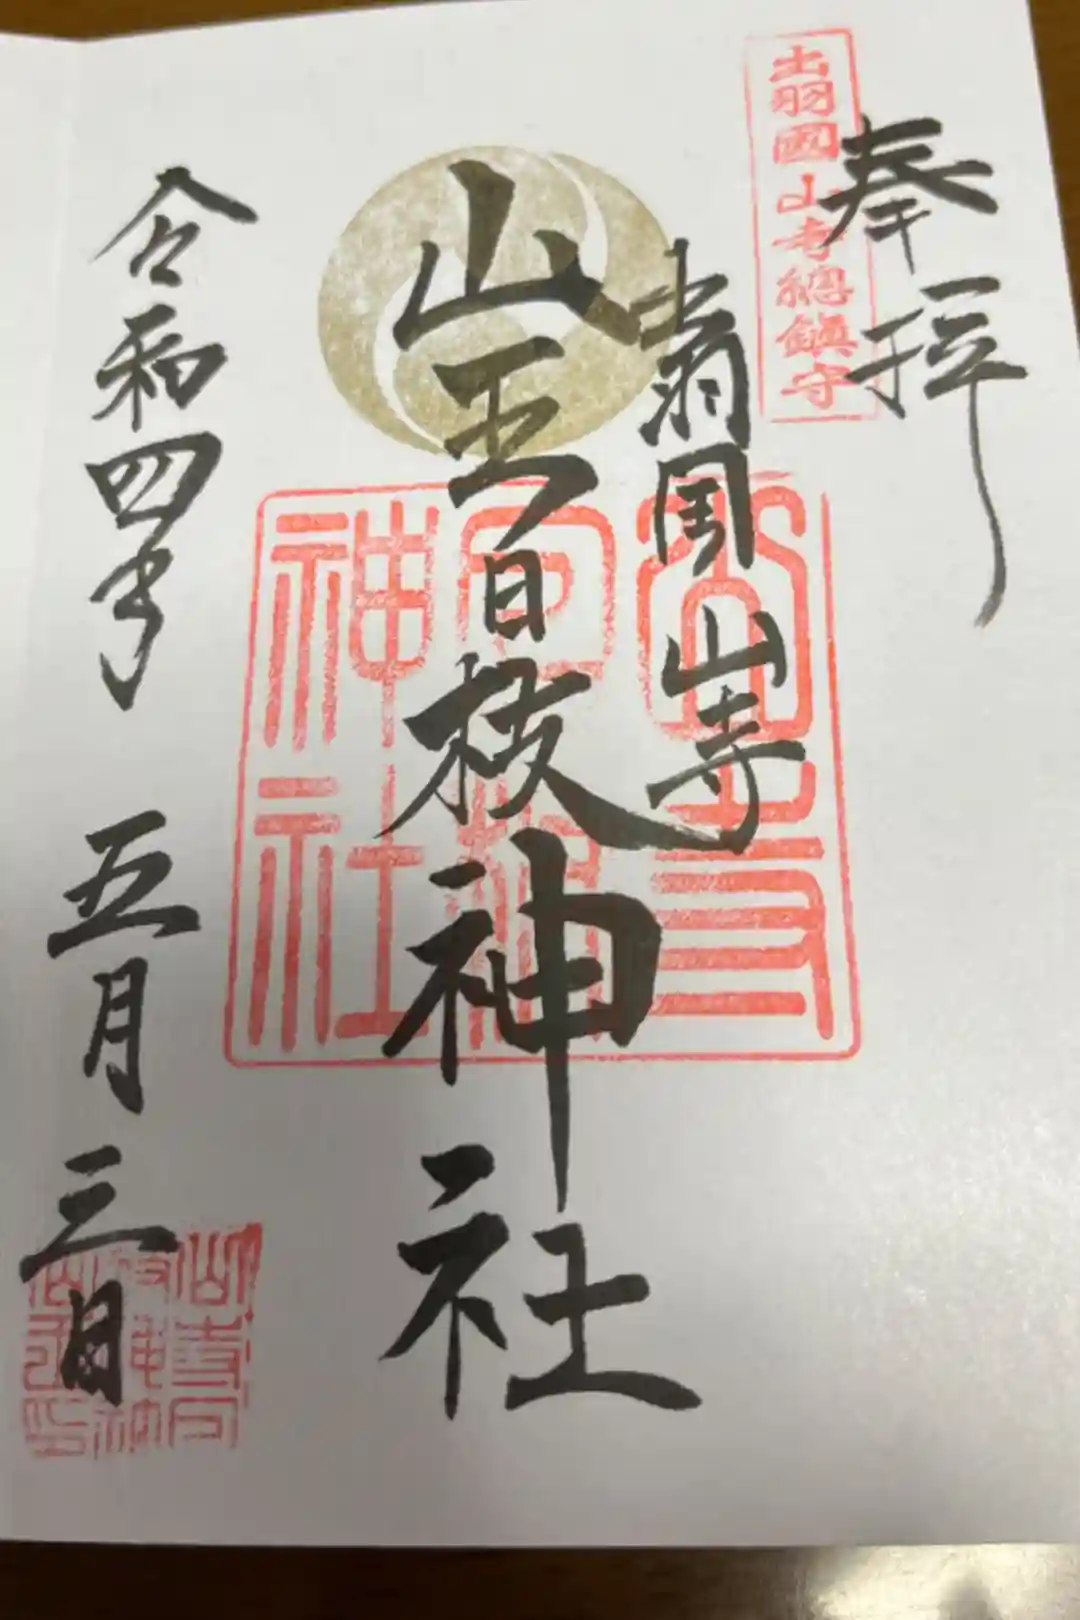 奉拝
出羽國山寺總鎮守
出羽国山寺
山王日枝神社
山寺日枝神社
令和四年
五月三日